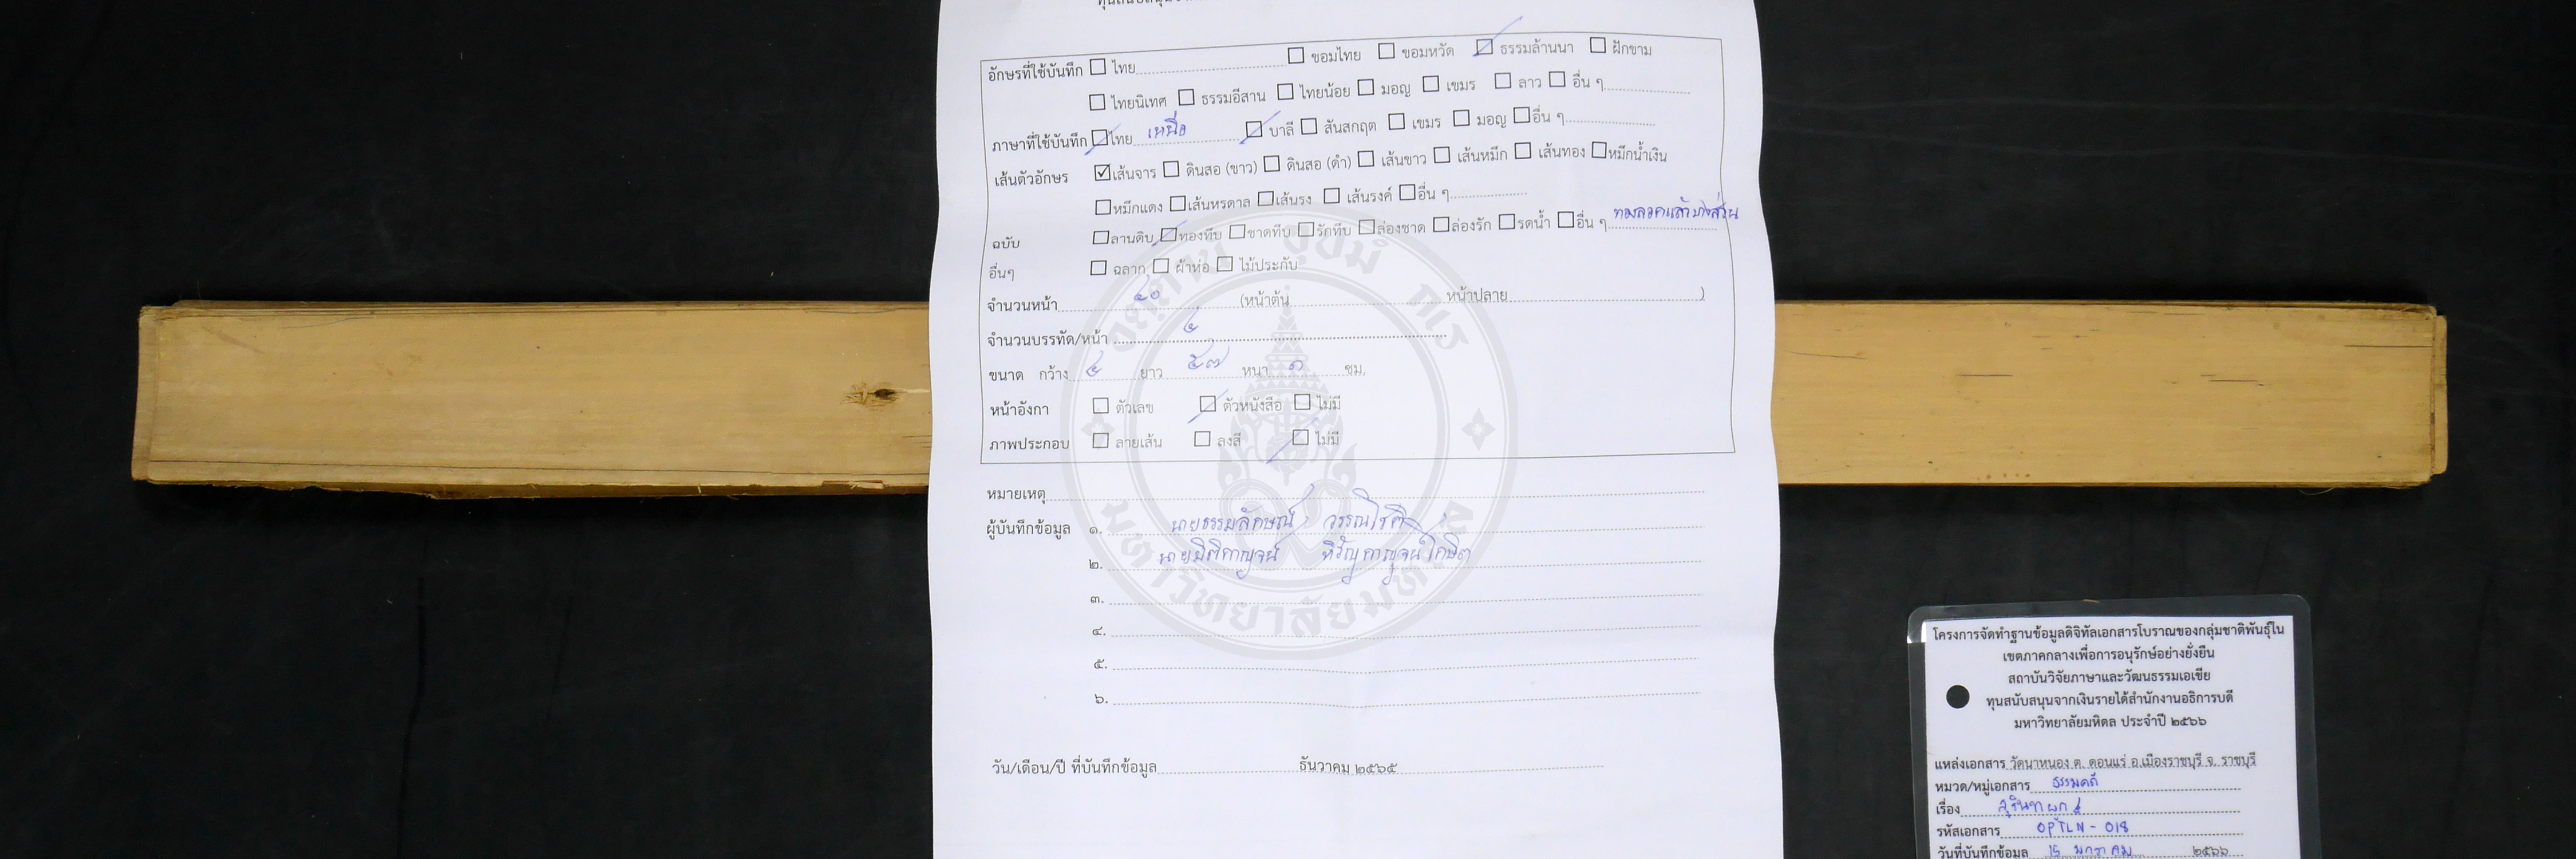 อักษรที่ใช้บันทึก ☐ ไทย ☐ ขอมไทย ☐ ขอมหวัด ☑ ธรรมล้านนา ☐ ฝักขาม
☐ ไทยนิเทศ ☐ ธรรมอีสาน ☐ ไทยน้อย ☐ มอญ ☐ เขมร ☐ ลาว ☐ อื่น ๆ
ภาษาที่ใช้บันทึก ☑ ไทย เหนือ ☑ บาลี ☐ สันสกฤต ☐ เขมร ☐ มอญ ☐ อื่น ๆ
เส้นตัวอักษร ☑ เส้นจาร ☐ ดินสอ (ขาว) ☐ ดินสอ (ดำ) ☐ เส้นขาว ☐ เส้นหมึก ☐ เส้นทอง ☐ หมึกน้ำเงิน
☐ หมึกแดง ☐ เส้นหรดาล ☐ เส้นรง ☐ เส้นรงค์ ☐ อื่น ๆ
ฉบับ ☐ ลานดิบ ☑ ทองทึบ ☐ ชาดทึบ ☐ รักทึบ ☐ ล่องชาด ☐ ล่องรัก ☐ รดน้ำ ☐ อื่น ๆ ทองลอกแล้วบางส่วน
อื่นๆ ☐ ฉลาก ☐ ผ้าห่อ ☐ ไม้ประกับ
จำนวนหน้า (หน้าต้น หน้าปลาย )
จำนวนบรรทัด/หน้า ๕
ขนาด กว้าง ๕ ยาว ๕๗ หนา ๑ ซม.
หน้าอังกา ☐ ตัวเลข ☑ ตัวหนังสือ ☐ ไม่มี
ภาพประกอบ ☐ ลายเส้น ☐ ลงสี ☑ ไม่มี
หมายเหตุ
ผู้บันทึกข้อมูล ๑. นายธรรมลักษณ์ วรรณโชติ
๒. นายปิติกาญจน์ หิรัญกาญจน์โกษิต
๓.
๔.
๕.
๖.
วัน/เดือน/ปี ที่บันทึกข้อมูล ธันวาคม ๒๕๖๕
มหาวิทยาลัยมหิดล
โครงการจัดทำฐานข้อมูลดิจิทัลเอกสารโบราณของกลุ่มชาติพันธุ์ใน
เขตภาคกลางเพื่อการอนุรักษ์อย่างยั่งยืน
สถาบันวิจัยภาษาและวัฒนธรรมเอเชีย
ทุนสนับสนุนจากเงินรายได้สำนักงานอธิการบดี
มหาวิทยาลัยมหิดล ประจำปี ๒๕๖๖
แหล่งเอกสาร วัดนาหนอง ต. ดอนแร่ อ.เมืองราชบุรี จ. ราชบุรี
หมวด/หมู่เอกสาร ธรรมคดี
เรื่อง
รหัสเอกสาร OPTLN - 018
วันที่บันทึกข้อมูล 15 มกราคม ๒๕๖๖